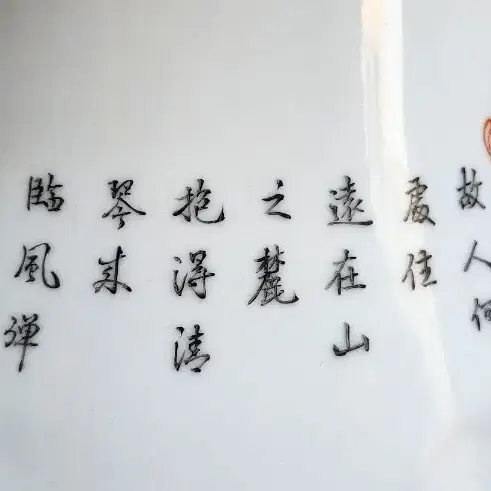 故人何
處住
遠在山
之麓
抱得清
琴來
臨風弹